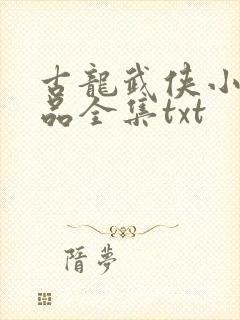 古龍武侠小
品全集txt
隋夢